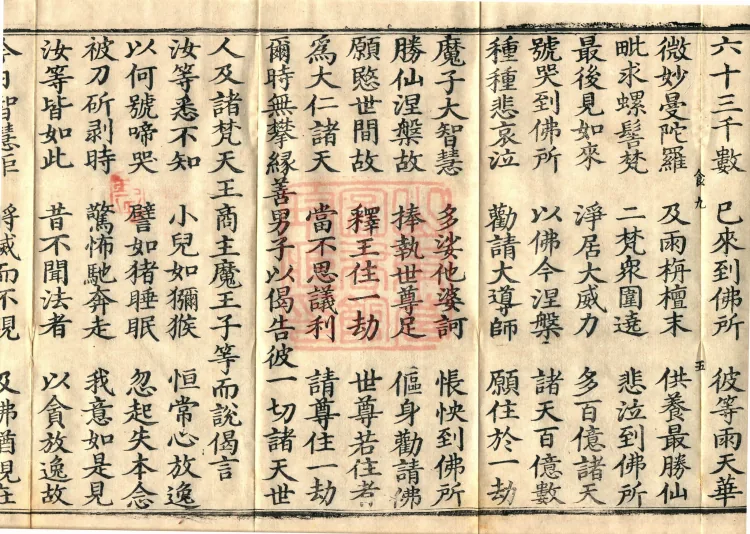 六十三千數　巳來到佛所　彼等雨天華
微妙曼陀羅　及雨栴檀末　供養最勝仙
毗求螺髻梵　二梵衆圍遶　悲泣到佛所
最後見如來　淨居大威力　多百億諸天
號哭到佛所　以佛今涅槃　諸天百億數
種種悲哀泣　勸請大導師　願住於一劫
魔子大智慧　多娑他婆訶　悵怏到佛所
勝仙涅槃故　捧執世尊足　傴身勸請佛
願愍世間故　釋王住一劫　世尊若住者
爲大仁諸天　當不思議利　請尊住一劫
爾時無攀緣善男子以偈告彼一切諸天世
人及諸梵天王商主魔王子等而說偈言
汝等悉不知　小兒如獼猴　恒常心放逸
以何號啼哭　譬如猪睡眠　忽起失本念
被刀斫剥時　驚怖馳奔走　我意如是見
汝等皆如此　昔不聞法者　以貪放逸故
智慧　威而不現　及佛猶現在
食九
五